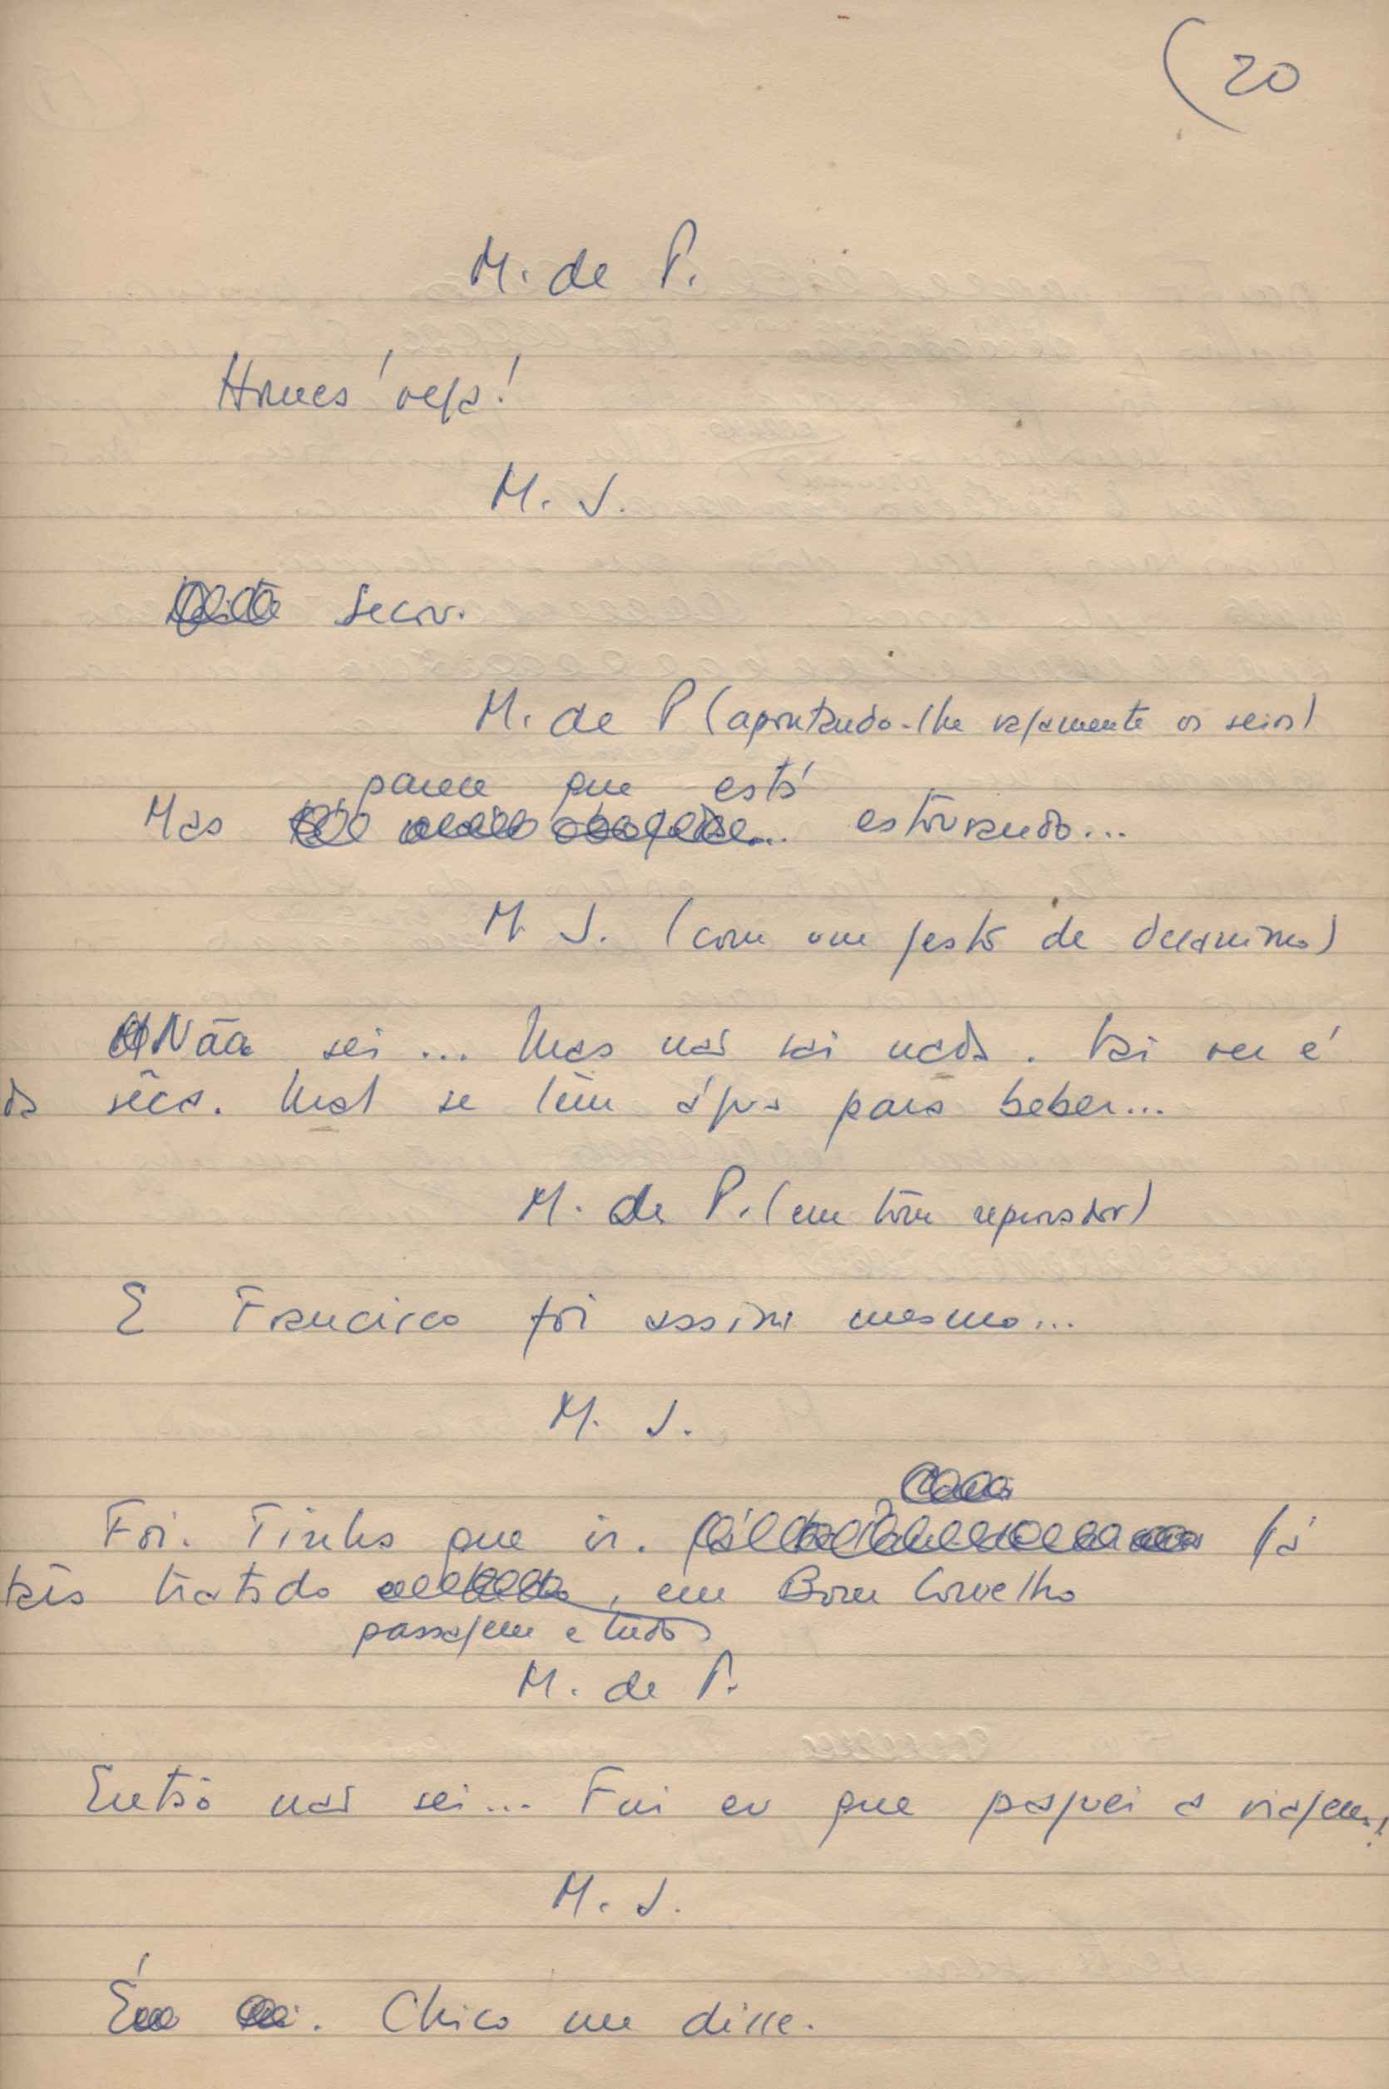 (20
M. de P.
Homes' veja!
M. J.
Secou.
M. de P (apontando-lhe vagamente os seios)
parece que está
Mas estourando...
M. J. (com um gesto de desânimo)
Não sei... Mas não sai nada. Vai ver é
da sêca. Mal se têm água para beber...
M. de P. (em tom reprovador)
E Francisco foi assim mesmo...
M. J.
Foi. Tinha que ir. Já
tás tratado , em Bom Conselho
passagem e tudo
M. de P.
Então não sei... Fui eu que paguei a viagem!
M. J.
É . Chico me disse.